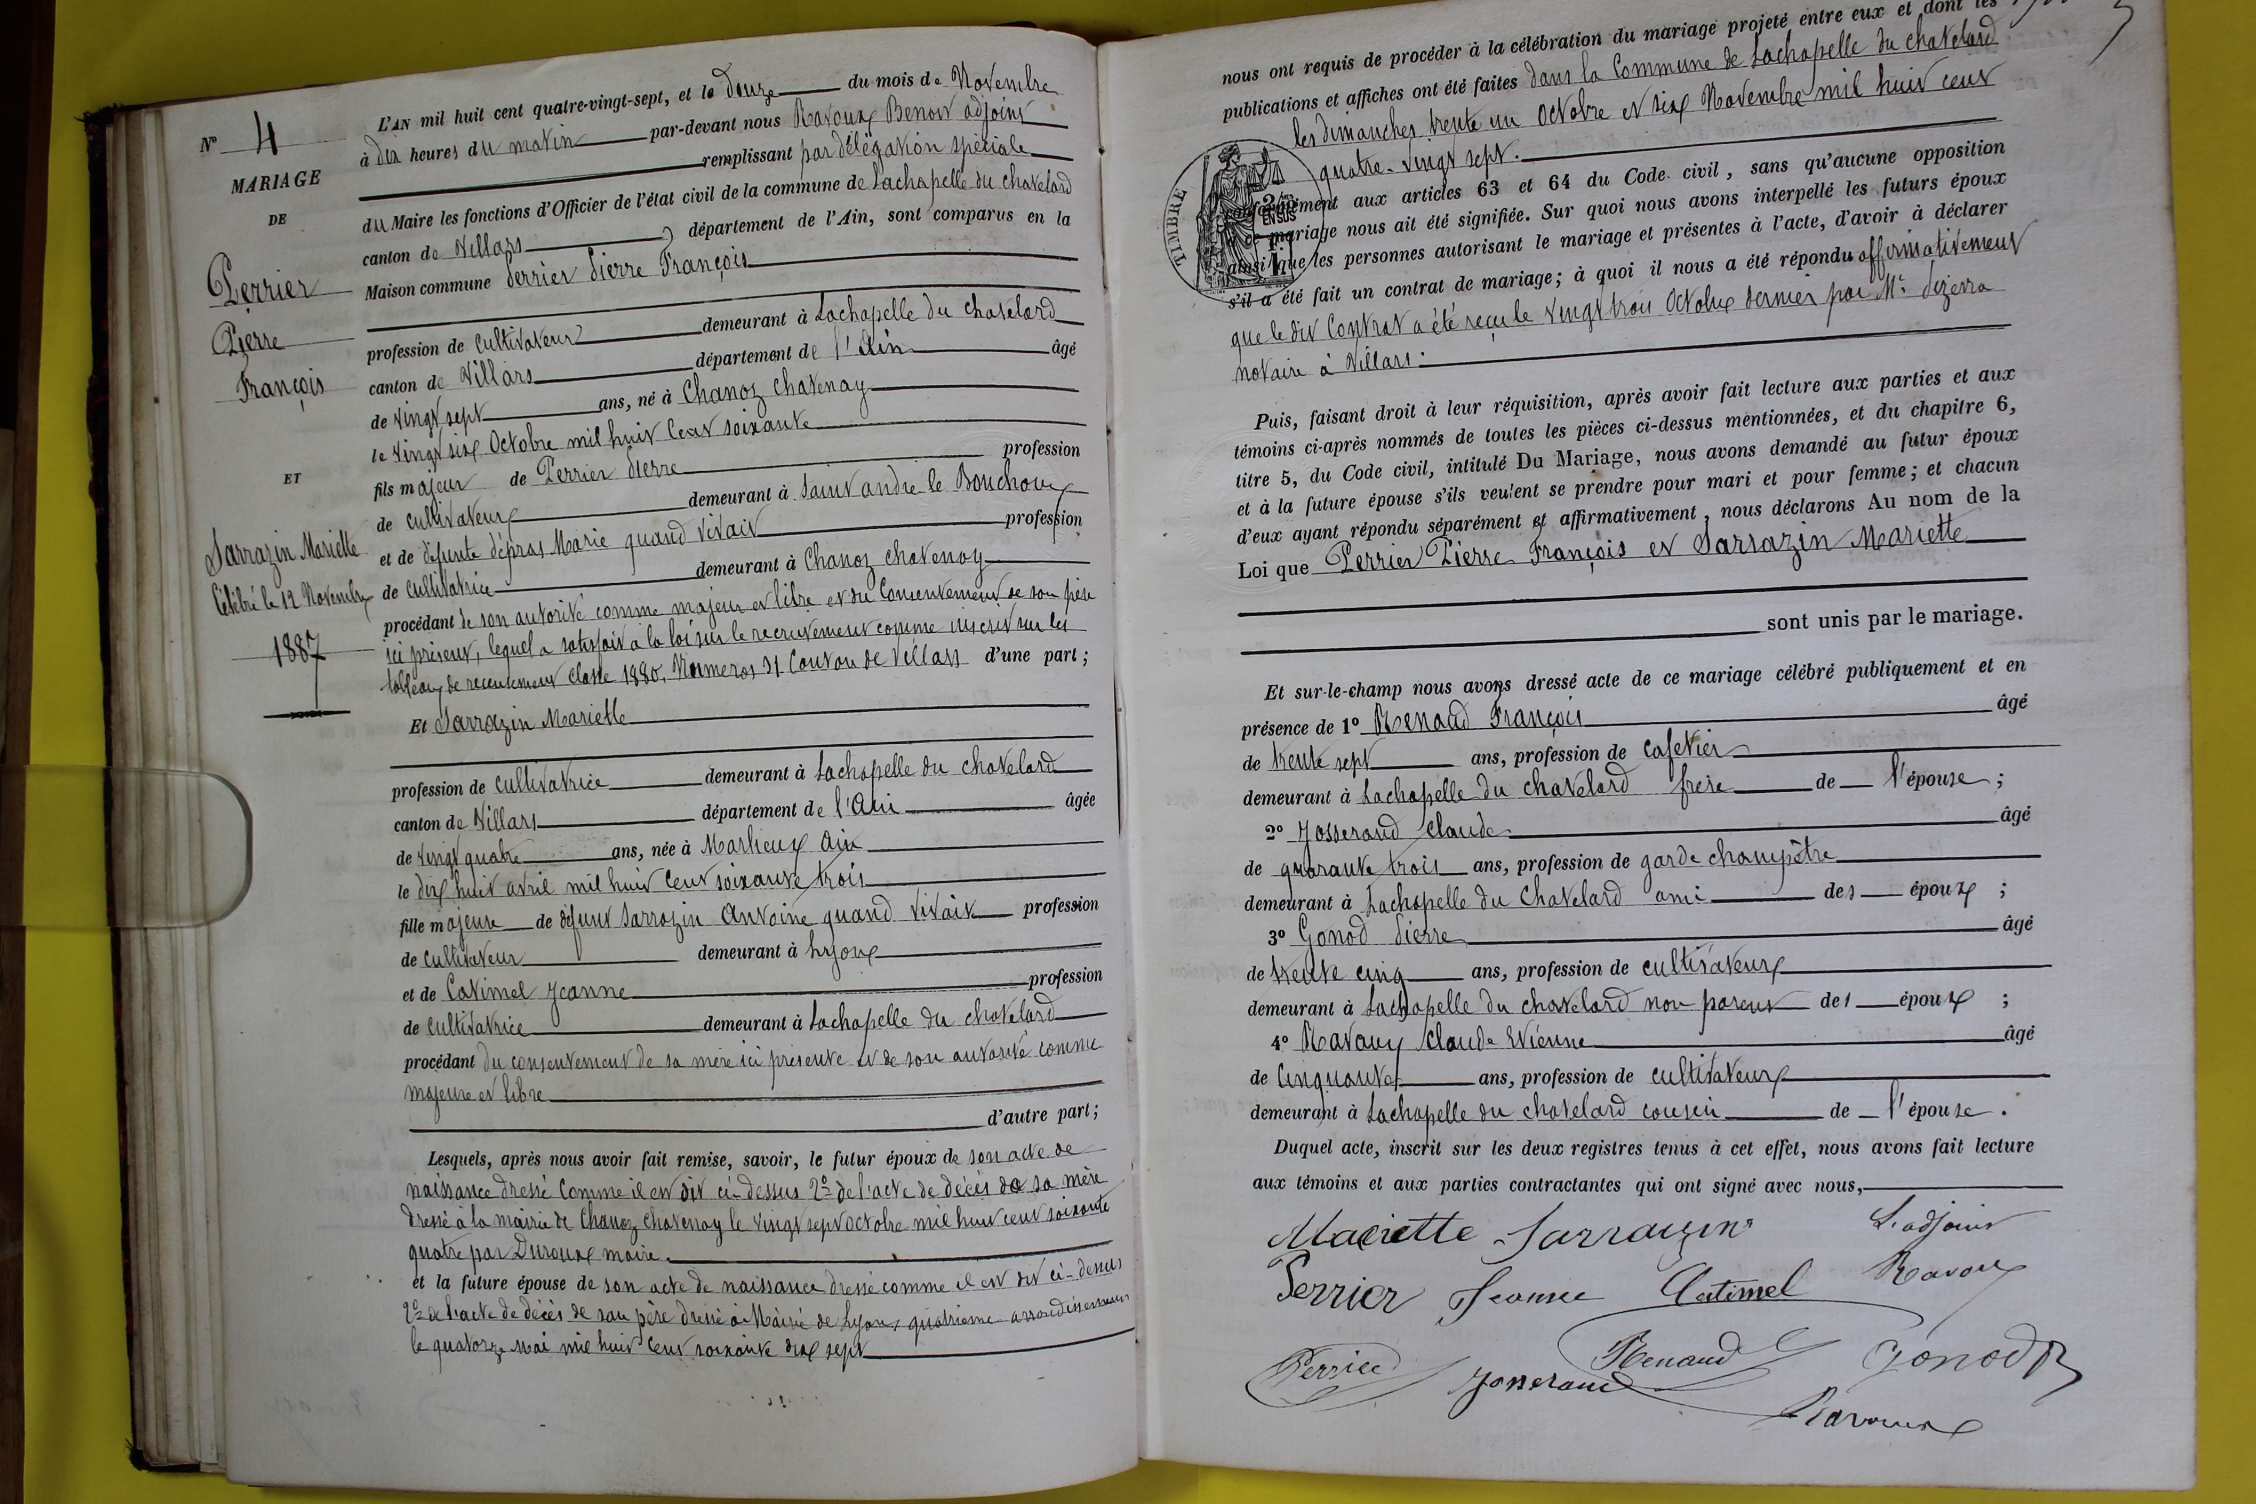 N° 4
MARIAGE
DE
Perrier
Pierre
François
ET
Sarrazin Mariette
Célébré le 12 Novembre
1887
L'AN mil huit cent quatre-vingt-sept, et le Douze du mois de Novembre
à dix heures du matin par-devant nous Ravoux Benoit adjoint
remplissant par délégation spéciale
du Maire les fonctions d'Officier de l'état civil de la commune de Lachapelle du chatelard
canton de Villars, département de l'Ain, sont comparus en la
Maison commune Perrier Pierre François
profession de cultivateur demeurant à Lachapelle du chatelard
canton de Villars département de l'Ain âgé
de vingt sept ans, né à Chanoz chatenay
le vingt six Octobre mil huit cent soixante
fils majeur de Perrier Pierre profession
de cultivateur demeurant à Saint andré le Bouchoux
et de défunte dépras Marie quand vivait profession
de cultivatrice demeurant à Chanoz chatenay
procédant de son autorité comme majeur et libre et du consentement de son père
ici présent, lequel a satisfait à la loi sur le recrutement comme inscrit sur les
tableaux de recensement classe 1880, Numéros 31 Canton de Villars d'une part;
Et Sarrazin Mariette
profession de cultivatrice demeurant à Lachapelle du chatelard
canton de Villars département de l'Ain âgée
de vingt quatre ans, née à Marlieux Ain
le dix huit avril mil huit cent soixante trois
fille majeure de défunt Sarrazin Antoine quand vivait profession
de cultivateur demeurant à Lyon
et de Catimel Jeanne profession
de cultivatrice demeurant à Lachapelle du chatelard
procédant du consentement de sa mère ici présente et de son autorité comme
majeure et libre
d'autre part;
Lesquels, après nous avoir fait remise, savoir, le futur époux de son acte de
naissance dressé comme il est dit ci-dessus 2° de l'acte de décès de sa mère
dressé à la mairie de Chanoz chatenay le vingt sept octobre mil huit cent soixante
quatre par Duroux maire.
et la future épouse de son acte de naissance dressé comme il est dit ci-dessus
2° de l'acte de décès de son père dressé à Mairie de Lyon, quatrième arrondissement
le quatorze Mai mil huit cent soixante dix sept
nous ont requis de procéder à la célébration du mariage projeté entre eux et dont les
publications et affiches ont été faites dans la Commune de Lachapelle du chatelard
les dimanches trente un Octobre et six Novembre mil huit cent
quatre-vingt sept.
TIMBRE
EN SUS
conformément aux articles 63 et 64 du Code civil, sans qu'aucune opposition
ce mariage nous ait été signifiée. Sur quoi nous avons interpellé les futurs époux
ainsi que les personnes autorisant le mariage et présentes à l'acte, d'avoir à déclarer
s'il a été fait un contrat de mariage; à quoi il nous a été répondu affirmativement
que le dit Contrat a été reçu le vingt trois Octobre dernier par Me
notaire à Villars:
Puis, faisant droit à leur réquisition, après avoir fait lecture aux parties et aux
témoins ci-après nommés de toutes les pièces ci-dessus mentionnées, et du chapitre 6,
titre 5, du Code civil, intitulé Du Mariage, nous avons demandé au futur époux
et à la future épouse s'ils veulent se prendre pour mari et pour femme; et chacun
d'eux ayant répondu séparément et affirmativement, nous déclarons Au nom de la
Loi que Perrier Pierre François et Sarrazin Mariette
sont unis par le mariage.
Et sur-le-champ nous avons dressé acte de ce mariage célébré publiquement et en
présence de 1° Renaud François âgé
de trente sept ans, profession de cafetier
demeurant à Lachapelle du chatelard frère de l'épouse;
2° Josserand Claude âgé
de quarante trois ans, profession de garde champêtre
demeurant à Lachapelle du Chatelard ami des époux;
3° Gonod Pierre âgé
de trente cinq ans, profession de cultivateur
demeurant à Lachapelle du chatelard non parent des époux;
4° Ravoux Claude Etienne âgé
de Cinquante ans, profession de cultivateur
demeurant à Lachapelle du chatelard cousin de l'épouse.
Duquel acte, inscrit sur les deux registres tenus à cet effet, nous avons fait lecture
aux témoins et aux parties contractantes qui ont signé avec nous,
Mariette Sarrazin L'adjoint
Perrier Jeanne Catimel Ravoux
Perrier Josserand Renaud Gonod
Ravoux